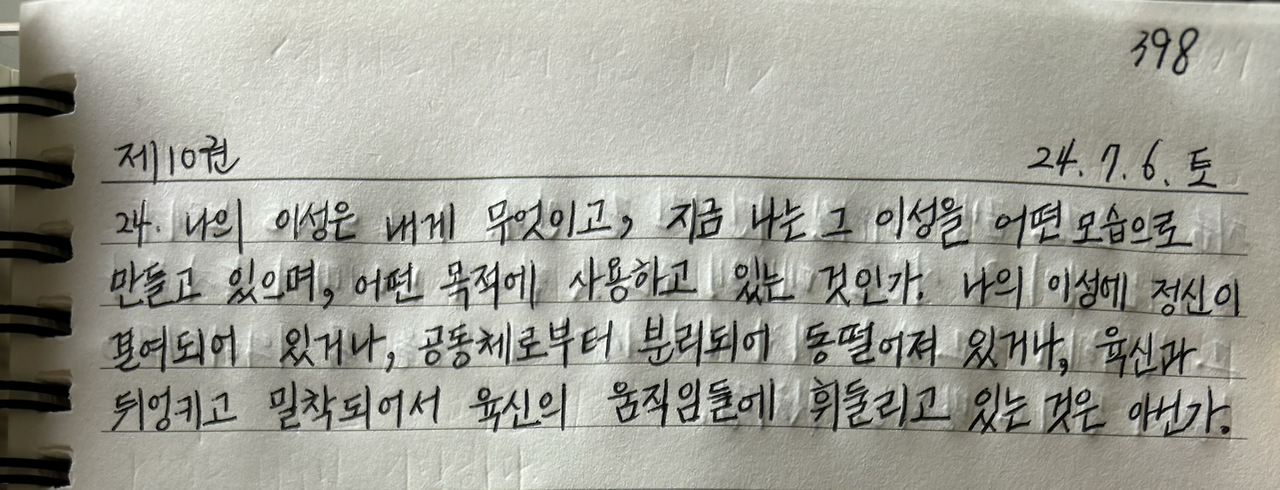 398
제10권 24. 7. 6. 토
24. 나의 이성은 내게 무엇이고, 지금 나는 그 이성을 어떤 모습으로
만들고 있으며, 어떤 목적에 사용하고 있는 것인가. 나의 이성에 정신이
결여되어 있거나, 공동체로부터 분리되어 동떨어져 있거나, 육신과
뒤엉키고 밀착되어서 육신의 움직임들에 휘둘리고 있는 것은 아닌가.